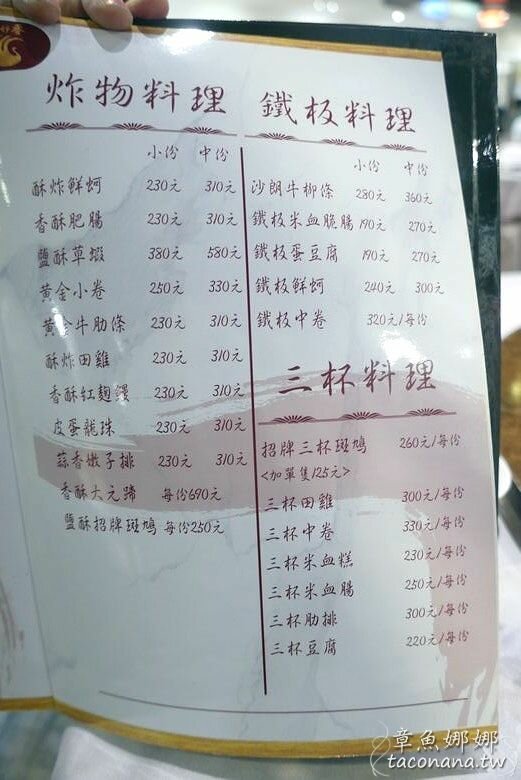 炸物料理
小份 中份
酥炸鮮蚵 230元 310元
香酥肥腸 230元 310元
鹽酥草蝦 380元 580元
黃金小卷 250元 330元
黃金牛肋條 230元 310元
酥炸田雞 230元 310元
香酥紅麴鰻 230元 310元
皮蛋龍珠 230元 310元
蒜香嫩子排 230元 310元
香酥大元蹄 每份690元
鹽酥招牌斑鳩 每份250元
鐵板料理
小份 中份
沙朗牛柳條 280元 360元
鐵板米血脆腸 190元 270元
鐵板蛋豆腐 190元 270元
鐵板鮮蚵 240元 300元
鐵板中卷 320元/每份
三杯料理
招牌三杯斑鳩 260元/每份
<加單隻125元>
三杯田雞 300元/每份
三杯中卷 330元/每份
三杯米血糕 230元/每份
三杯米血腸 250元/每份
三杯肋排 300元/每份
三杯豆腐 220元/每份
章魚娜娜
taconana.tw